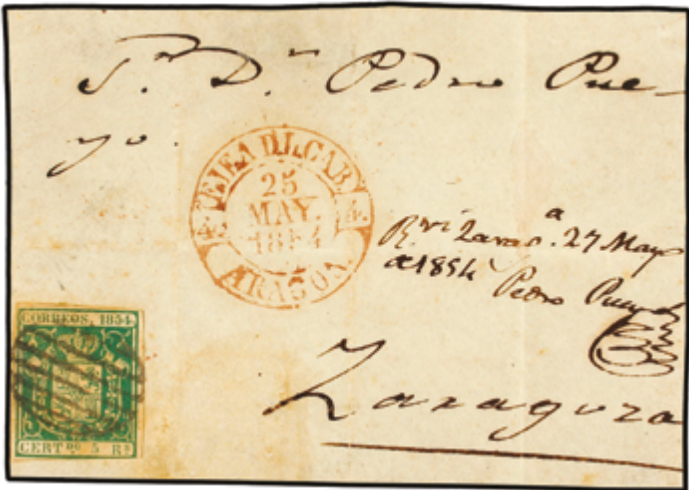 Sr. Dn. Pedro Pue-
yo.
EJEA D L. CAB.
25
MAY.
1854
4. 4.
ARAGON.
Rvi Zaraga. 27 Mayo
de 1854
Pedro Pueyo
Zaragoza
CORREOS, 1854.
CERTDO. 5 Rs.